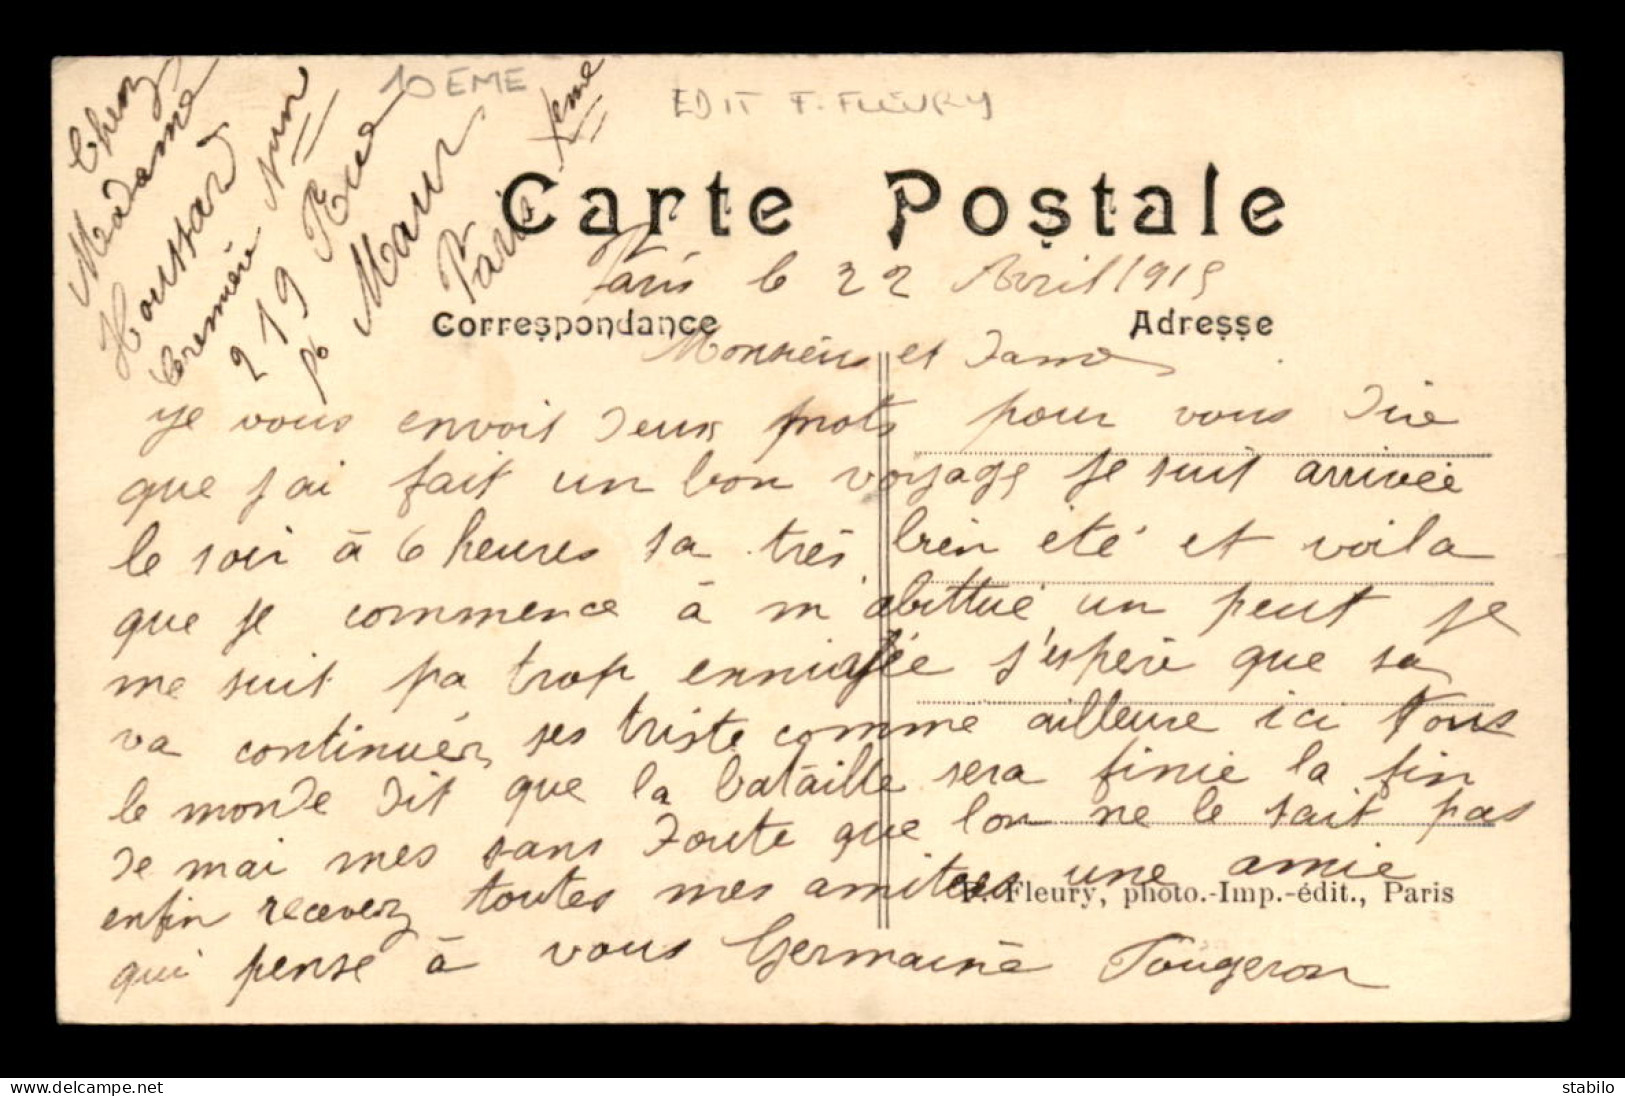 10 EME
EDIT F. FLEURY
Chez
Madame
Houssard
Cremière
219 Rue
St Maur
Paris Xeme
Carte Postale
Paris le 22 Avril 1915
Correspondance
Adresse
Monsieur et Dame
Je vous envoit deux mots pour vous dire
que j'ai fait un bon voyage je suit arrivée
le soir à 6 heures sa très bien été et voila
que je commence à m'abittué un peut je
me suit pa trop enniuée j'espère que sa
va continuér ses triste comme ailleure ici tous
le monde dit que la bataille sera finie la fin
de mai mes sans doute que lon ne le sait pas
enfin recevez toutes mes amitees une amie
F. Fleury, photo.-Imp.-édit., Paris
qui pense à vous Germaine Fougeron
delcampe.net
stabilo